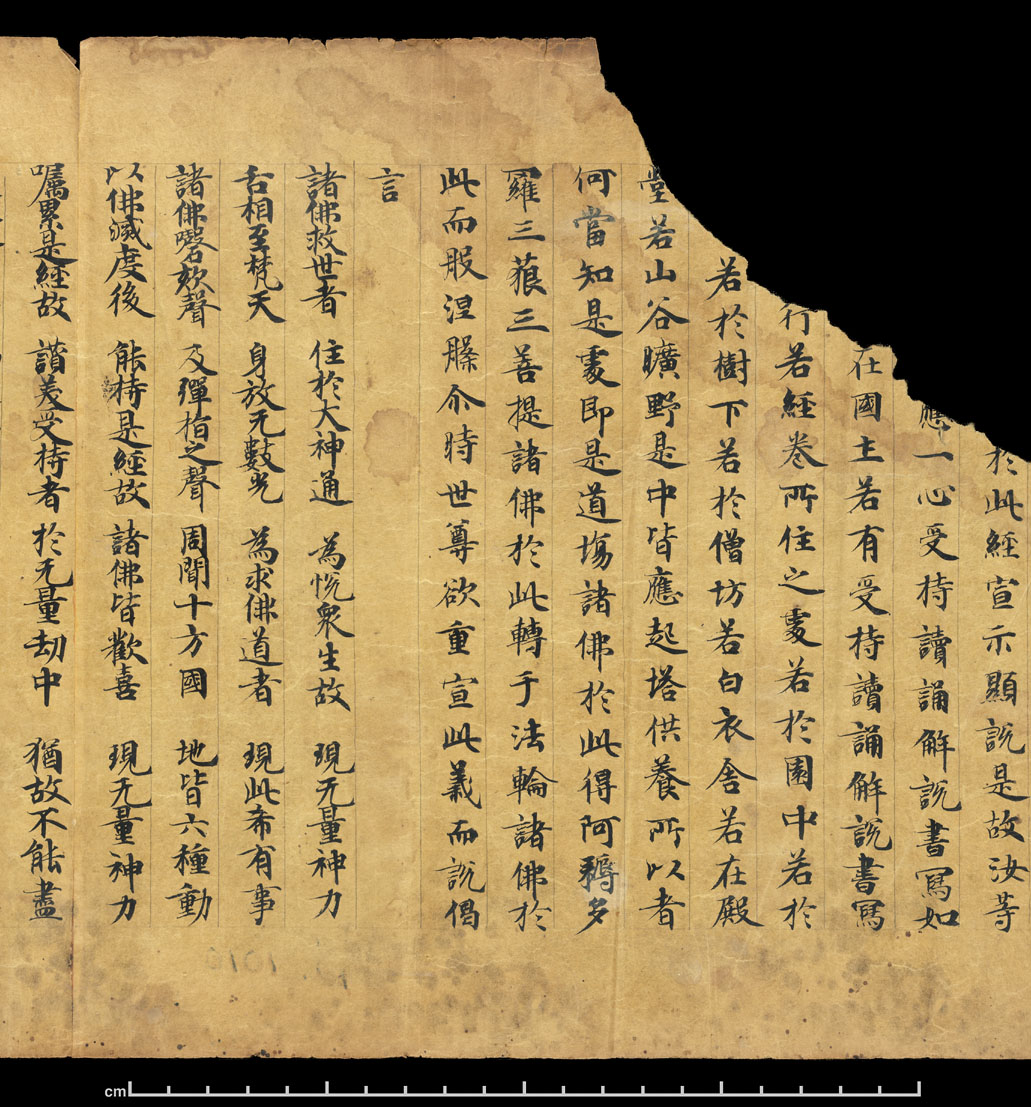 於此經宣示顯說是故汝等
應一心受持讀誦解說書寫如
在國土若有受持讀誦解說書寫
行若經卷所住之處若於園中若於
若於樹下若於僧坊若白衣舍若在殿
堂若山谷曠野是中皆應起塔供養所以者
何當知是處即是道場諸佛於此得阿耨多
羅三藐三菩提諸佛於此轉于法輪諸佛於
此而般涅槃尒時世尊欲重宣此義而說偈
言
諸佛救世者 住於大神通 為悅衆生故 現无量神力
舌相至梵天 身放无數光 為求佛道者 現此希有事
諸佛謦欬聲 及彈指之聲 周聞十方國 地皆六種動
以佛滅度後 能持是經故 諸佛皆歡喜 現无量神力
囑累是經故 讃美受持者 於无量劫中 猶故不能盡
cm